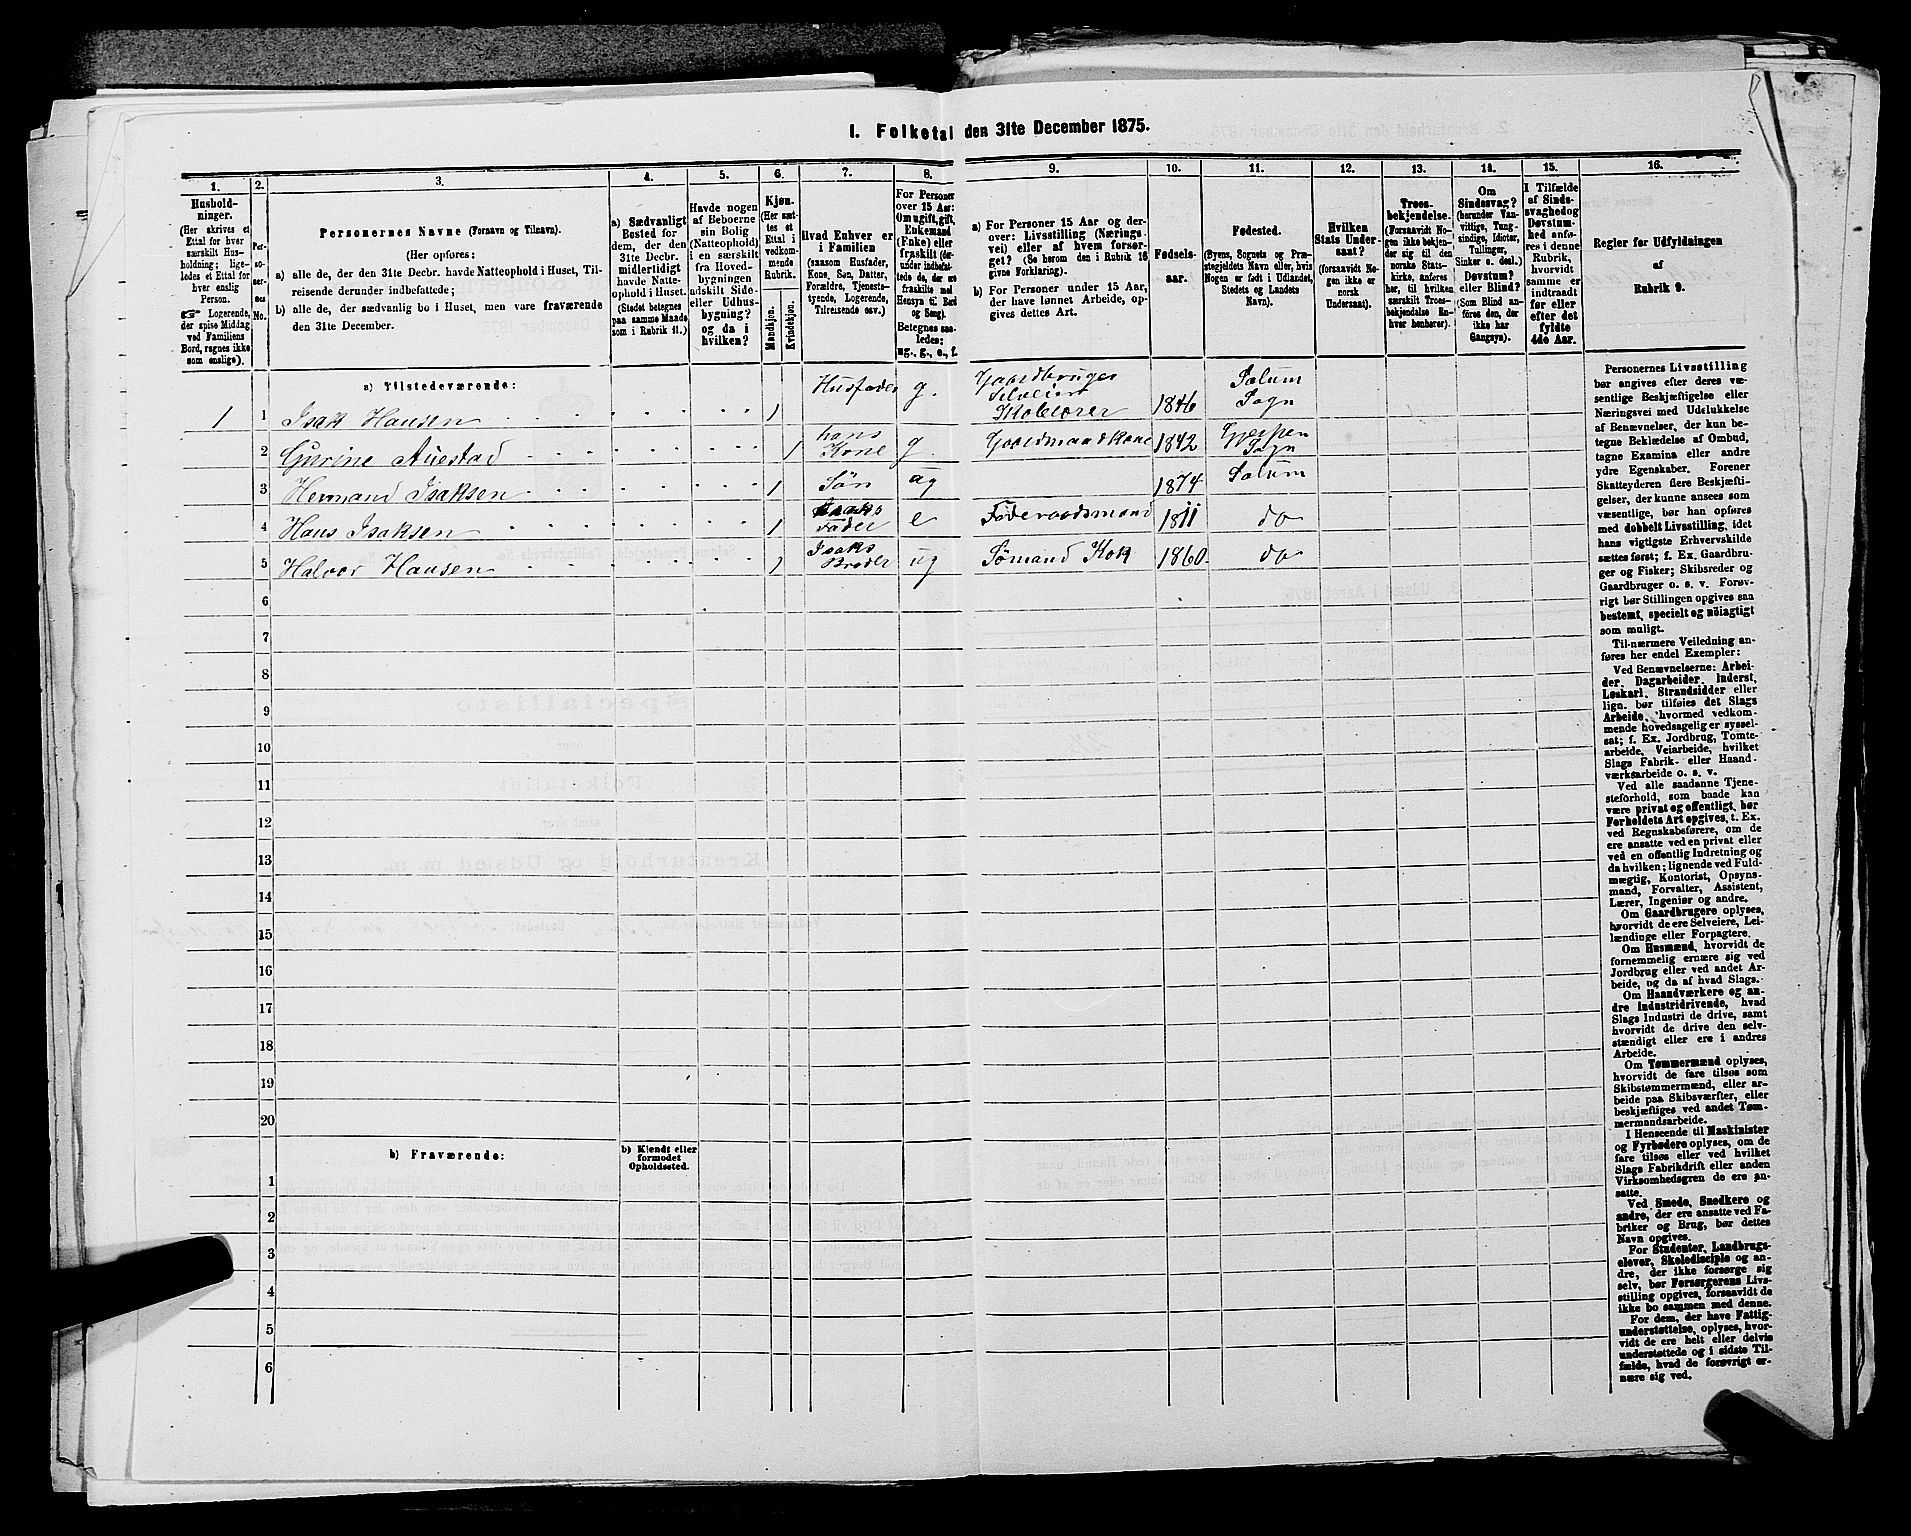 I. Folketal den 31te December 1875.
1. 2. 3. 4. 5. 6. 7. 8. 9. 10. 11. 12. 13. 14. 15. 16.
Husholdninger.
(Her skrives et
Ettal for hver
særskilt Husholdning;
ligeledes et Ettal for
hver enslig
Person.
☞ Logerende,
der spise Middag
ved Familiens
Bord, regnes ikke
som enslige).
Personernes No.
Personernes Navne (Fornavn og Tilnavn).
(Her opføres:
a) alle de, der den 31te Decbr. havde Natteophold i Huset, Tilreisende derunder indbefattede;
b) alle de, der sædvanlig bo i Huset, men vare fraværende
den 31te December.
a) Sædvanligt
Bosted for
dem, der den
31te Decbr.
midlertidigt
havde Natteophold i Huset.
(Stedet betegnes
paa samme Maade
som i Rubrik 11.)
Havde nogen
af Beboerne
sin Bolig
(Natteophold)
i en særskilt
fra Hovedbygningen
adskilt Side-
eller Udhusbygning?
og da i
hvilken?
Kjøn.
(Her sættes et
Ettal i
vedkommende
Rubrik.)
Mandskjøn.
Kvindekjøn.
Hvad Enhver er
i Familien
(saasom Husfader,
Kone, Søn, Datter,
Forældre, Tjenestetyende, Logerende,
Tilreisende osv.)
For Personer
over 15 Aar:
Om ugift, gift,
Enkemand
(Enke) eller
fraskilt (derunder indbefattede, de, der ere
fraskilte med
Hensyn til Bord
og Seng).
Betegnes saaledes:
ug., g., e., f.
a) For Personer 15 Aar og derover: Livsstilling (Næringsvei) eller af hvem forsørget? (Se herom den i Rubrik 16
givne Forklaring).
b) For Personer under 15 Aar,
der have lønnet Arbeide, opgives dettes Art.
Fødselsaar.
Fødested.
(Byens, Sognets og Præstegjeldets Navn eller, hvis
Nogen er født i Udlandet,
Stedets og Landets
Navn).
Hvilken
Stats Undersaat?
(forsaavidt Nogen ikke er
norsk
Undersaat).
Troesbekjendelse.
(Forsaavidt Nogen ikke bekjender sig til den
norske Statskirke, anføres
her, til hvilken
særskilt Troesbekjendelse Enhver henhører).
Om
Sindssvag?
(herunder Vanvittige, Tungsindige, Idioter,
Tullinger,
Sinker o. desl.)
Døvstum?
eller Blind?
(Som Blind anføres den, der
ikke har
Gangsyn).
I Tilfælde
af Sindssvaghed og
Døvstumhed anføres i denne
Rubrik,
hvorvidt
samme er
indtraadt
før eller
efter det
fyldte
4de Aar.
Regler for Udfyldningen
af
Rubrik 9.
a) Tilstedeværende:
1 1 Isak Hansen 1 Husfader g. Gaardbruger Selveier 1846 Solum Sogn
2 Gurine Auestad 1 hans Kone g. Gaardmandskone 1842 Gjerpen Sogn
3 Hermand Isaksen 1 Søn ug 1874 Solum
4 Hans Isaksen 1 Isaks Fader e Føderaadsmand 1811 do
5 Halvor Hansen 1 Isaks Broder ug Sømand Kok 1860 do
6
7
8
9
10
11
12
13
14
15
16
17
18
19
20
b) Fraværende:
b) Kjendt eller
formodet
Opholdssted.
1
2
3
4
5
6
Personernes Livsstilling
bør angives efter deres væsentlige Beskjæftigelse eller
Næringsvei med Udelukkelse
af Benævnelser, der kun betegne Beklædelse af Ombud,
tagne Examina eller andre
ydre Egenskaber. Forener
Skatteyderen flere Beskjæftigelser, der kunne ansees som
væsentlige, bør han opføres
med dobbelt Livsstilling, idet
hans vigtigste Erhvervskilde
sættes først; f. Ex. Gaardbruger og Fisker; Skibsreder og
Gaardbruger o. s. v. Forøvrigt bør Stillingen opgives saa
bestemt, specielt og nøiagtigt
som muligt.
Til nærmere Veiledning anføres her endel Exempler:
Ved Benævnelserne: Arbeider, Dagarbeider, Inderst,
Løskarl, Strandsidder eller
lign. bør tilføies det Slags
Arbeide, hvormed vedkommende hovedsagelig er sysselsat; f. Ex. Jordbrug, Tomtearbeide, Veiarbeide, hvilket
Slags Fabrik- eller Haandværksarbeide o. s. v.
Ved alle saadanne Tjenesteforhold, som baade kan
være privat og offentligt, bør
Forholdets Art opgives, t. Ex.
ved Regnskabsførere, om de
ere ansatte ved en privat eller
ved en offentlig Indretning og
da hvilken; lignende ved Fuldmægtig, Kontorist, Opsynsmand, Forvalter, Assistent,
Lærer, Ingeniør og andre.
Om Gaardbrugere oplyses,
hvorvidt de ere Selveiere, Leilændinge eller Forpagtere.
Om Husmænd, hvorvidt de
fornemmelig ernære sig ved
Jordbrug eller ved andet Arbeide, og da af hvad Slags.
Om Haandværkere og andre Industridrivende, hvad
Slags Industri de drive, samt
hvorvidt de drive den selvstændigt eller ere i andres
Arbeide.
Om Tømmermænd oplyses,
hvorvidt de fare tilsøs som
Skibstømmermænd, eller arbeide paa Skibsværfter, eller
beskjæftiges ved andet Tømmermandsarbeide.
I Henseende til Maskinister
og Fyrbødere oplyses, om de
fare tilsøs eller ved hvilket
Slags Fabrikdrift eller anden
Virksomhedsgren de ere ansatte.
Ved Smede, Snedkere og
andre, der ere ansatte ved Fabriker og Brug, bør dettes
Navn opgives.
For Studenter, Landbrugselever, Skoledisciple og andre, der ikke forsørge sig
selv, bør Forsørgerens Livsstilling opgives, forsaavidt de
ikke bo sammen med denne.
For dem, der have Fattigunderstøttelse, oplyses, hvorvidt de ere helt eller delvis
understøttede og i sidste Tilfælde, hvad de forøvrigt ernære sig ved.